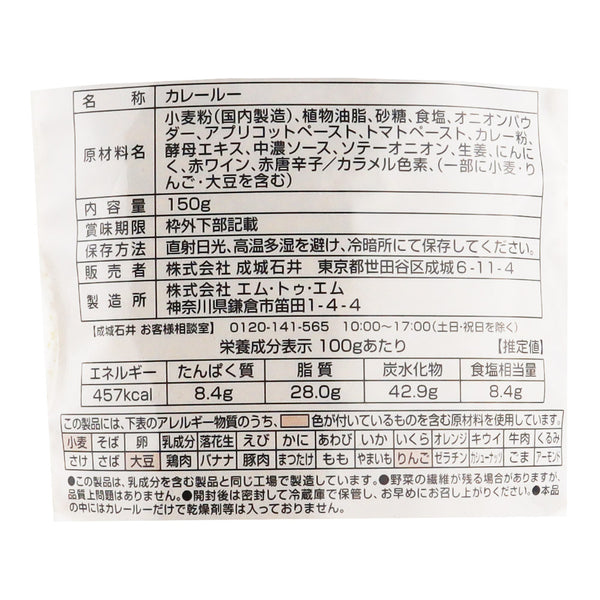 名称 カレールー
原材料名 小麦粉(国内製造)、植物油脂、砂糖、食塩、オニオンパウ
ダー、アプリコットペースト、トマトペースト、カレー粉、
酵母エキス、中濃ソース、ソテーオニオン、生姜、にんに
く、赤ワイン、赤唐辛子/カラメル色素、(一部に小麦・り
んご・大豆を含む)
内容量 150g
賞味期限 枠外下部記載
保存方法 直射日光、高温多湿を避け、冷暗所にて保存してください。
販売者 株式会社 成城石井 東京都世田谷区成城6-11-4
製造所 株式会社 エム・トゥ・エム
神奈川県鎌倉市笛田1-4-4
【成城石井 お客様相談室】 0120-141-565 10:00~17:00(土日・祝日を除く)
栄養成分表示 100gあたり 【推定値】
エネルギー たんぱく質 脂質 炭水化物 食塩相当量
457kcal 8.4g 28.0g 42.9g 8.4g
この製品には、下表のアレルギー物質のうち、 色が付いているものを含む原材料を使用しています。
小麦 そば 卵 乳成分 落花生 えび かに あわび いか いくら オレンジ キウイ 牛肉 くるみ
さけ さば 大豆 鶏肉 バナナ 豚肉 まつたけ もも やまいも りんご ゼラチン カシューナッツ ごま アーモンド
●この製品は、乳成分を含む製品と同じ工場で製造しています。●野菜の繊維が残る場合がありますが、
品質上問題はありません。●開封後は密封して冷蔵庫で保管し、お早めにお召し上がりください。●本品
の中にはカレールーだけで乾燥剤等は入っておりません。